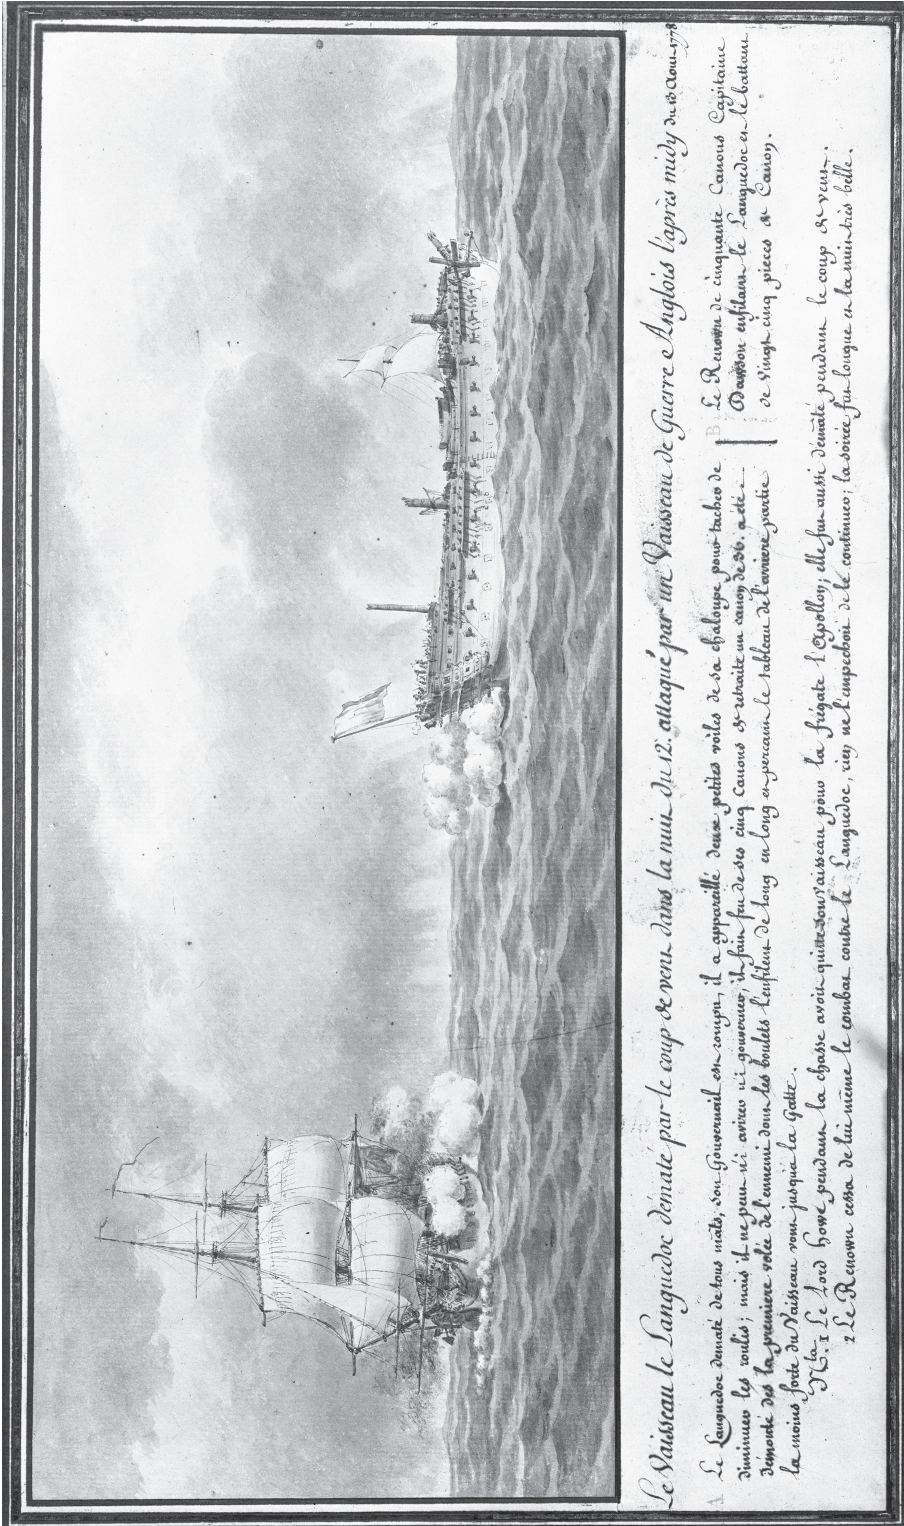 Le Vaisseau le Languedoc dématé par le coup de vent dans la nuit du 12. attaqué par un Vaisseau de Guerre Anglois l'après midy du 13 Aout 1778
A Le Languedoc dematé de tous mats, son Gouvernail est rompu, il a appareillé deux petites voiles de sa chaloupe pour tacher de
diminuer les roulis; mais il ne peut ni arriver ni gouverner, il fait feu de ses cinq Canons de retraite un canon de 36. a été
démonté dès la premiere volée de l'ennemi dont les boulets l'enfilent de long en long en percant le tableau de l'arriere partie
la moins forte du Vaisseau vont jusqua la Gatte.
B Le Renown de cinquante Canons Capitaine
Dawson enfilant le Languedoc en le battant
de vingt cinq pieces de Canon.
Nta. 1 Le Lord Howe pendant la chasse avoit quitté son Vaisseau pour la frégate l'Apollon; elle fut aussi dématé pendant le coup de vent.
2 Le Renown cessa de lui même le combat contre le Languedoc, rien ne l'empechoit de le continuer; la soirée fut longue et la nuit très belle.